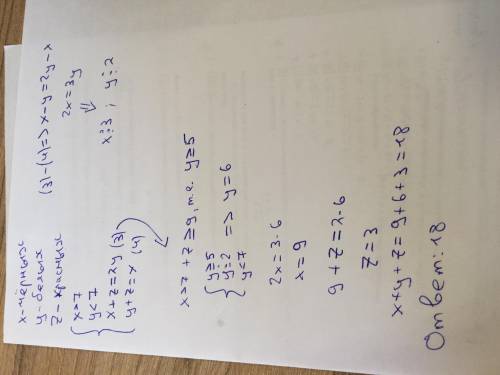 x-чёрных
y-белых
z-красных
x>7
y<7
x+z=2y (3)
y+z=x (4)
(3)-(4)=> x-y=2y-x
2x=3y
⇓
x⋮3 ; y⋮2
z≥9, т.е. y≥5
y≥5
y⋮2 => y=6
y<7
2x=3·6
x=9
9+z=2·6
z=3
x+y+z=9+6+3=18
Ответ: 18